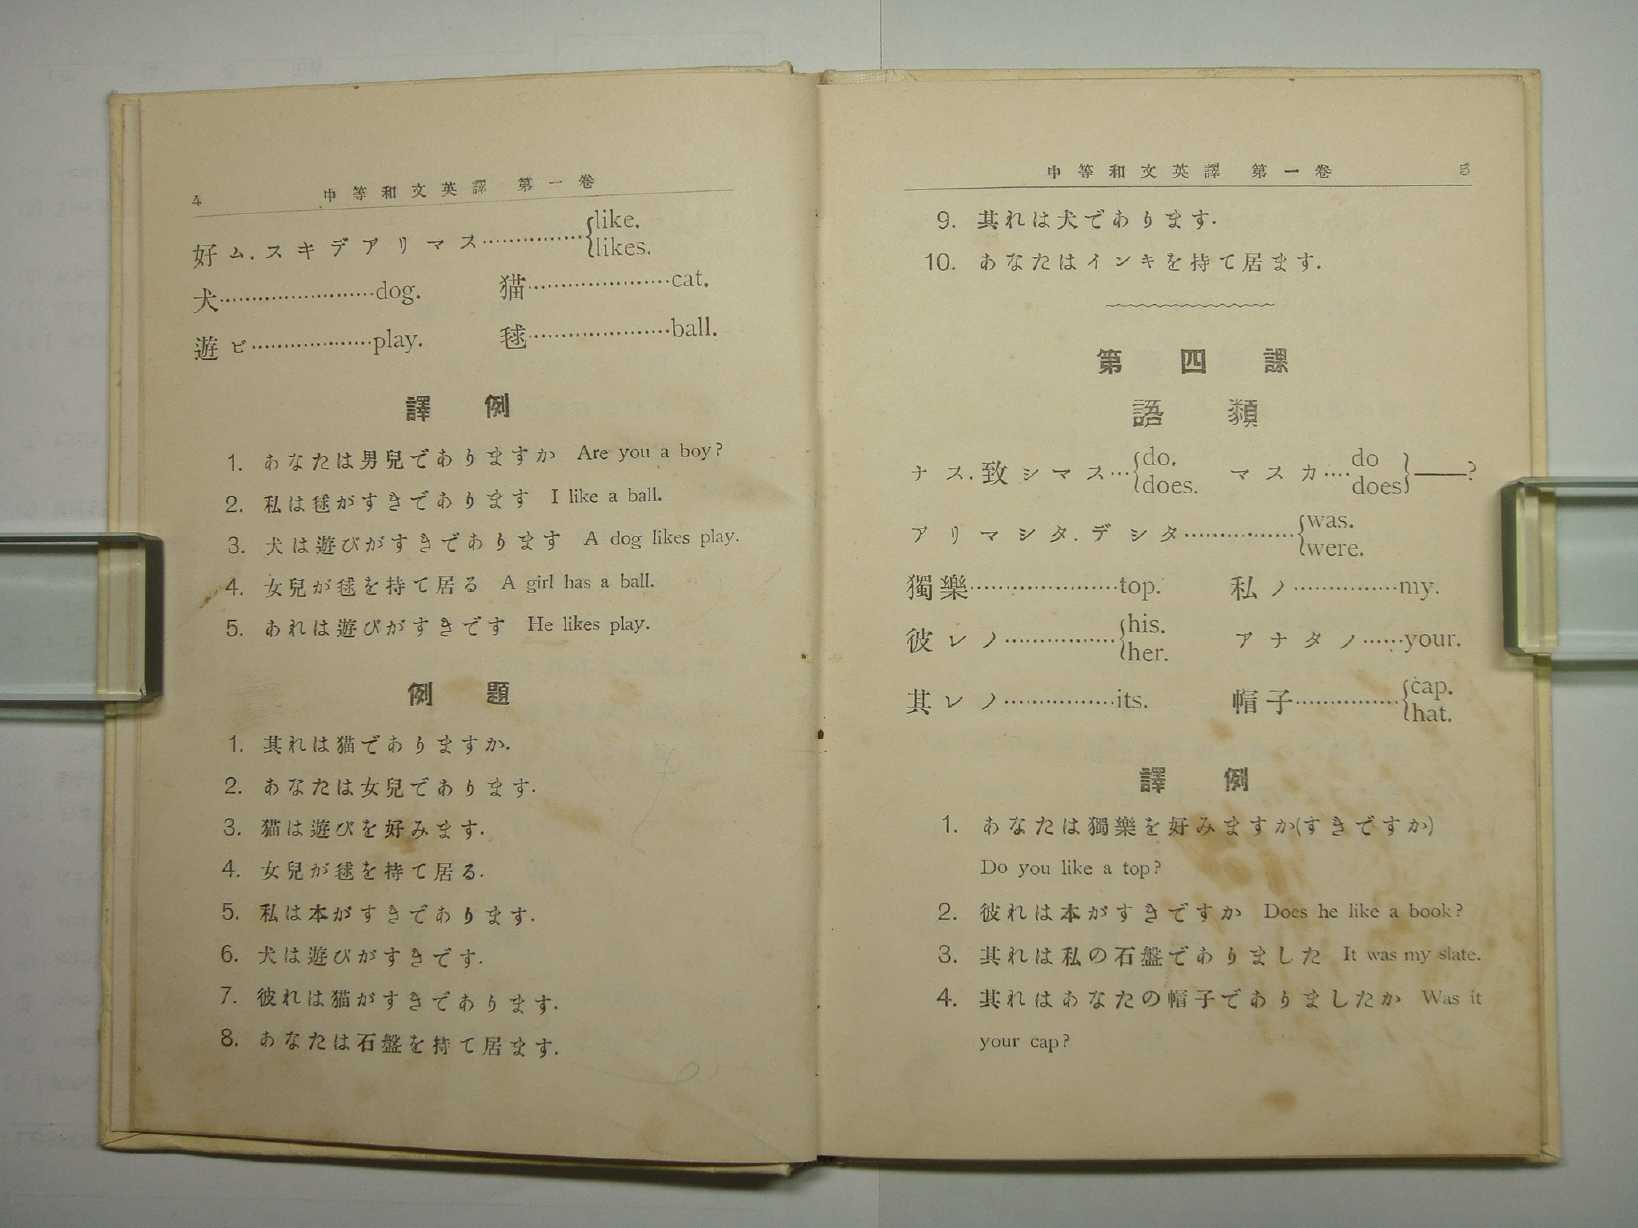 4 中等和文英譯 第一卷
好ム.スキデアリマス……………{like. likes.
犬……………………dog. 猫…………………cat.
遊ビ………………play. 毬…………………ball.
譯例
1. あなたは男兒でありますか Are you a boy?
2. 私は毬がすきであります I like a ball.
3. 犬は遊びがすきであります A dog likes play.
4. 女兒が毬を持て居る A girl has a ball.
5. あれは遊びがすきです He likes play.
例題
1. 其れは猫でありますか.
2. あなたは女兒であります.
3. 猫は遊びを好みます.
4. 女兒が毬を持て居る.
5. 私は本がすきであります.
6. 犬は遊びがすきです.
7. 彼れは猫がすきであります.
8. あなたは石盤を持て居ます.
中等和文英譯 第一卷 5
9. 其れは犬であります.
10. あなたはインキを持て居ます.
第四課
語類
ナス.致シマス…{do. does. マスカ….do does}——?
アリマシタ.デシタ……………{was. were.
獨樂…………………top. 私ノ……………my.
彼レノ……………{his. her. アナタノ……your.
其レノ……………its. 帽子……………{cap. hat.
譯例
1. あなたは獨樂を好みますか(すきですか)
Do you like a top?
2. 彼れは本がすきですか Does he like a book?
3. 其れは私の石盤でありました It was my slate.
4. 其れはあなたの帽子でありましたか Was it
your cap?